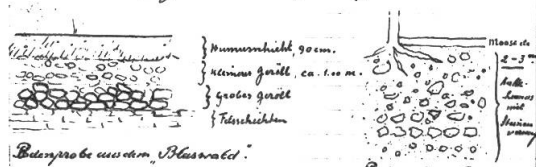 Humusschicht, 90 cm.
kleines Geröll, ca. 1.00 m.
Grobes Geröll
Felsschichten
Bodenprobe aus dem "Blaswald".
Moose etc.
2-3 m
Humus
mit